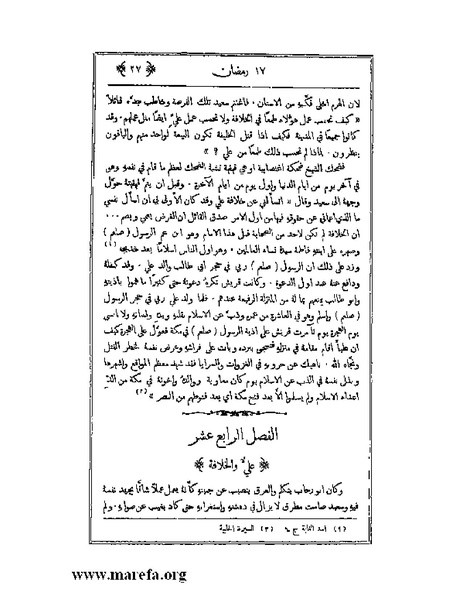 ﴿ ٢٧ ﴾ ١٧ رمضان
لان الهرم اخلى فكّيه من الاسنان . فاغتنم سعيد تلك الفرصة وخاطب جده قائلاً
« كيف تحسب عمل هؤلاء طمعًا في الخلافة ولا تحسب عمل عليّ ايضًا مثل عملهم . وقد
كانوا جميعًا في المدينة فكيف اذا قتل الخليفة تكون البيعة لواحد منهم والباقون
ينظرون . لماذا لم تحسب ذلك طمعًا من علي ؟ »
فضحك الشيخ ضحكة اغتصابية او هي قهقهة تشبه الضحك لعظم ما قام في نفسه وهو
في آخر يوم من ايام الدنيا واول يوم من ايام الآخرة . وقبل ان يتم قهقهته حوّل
وجهه الى سعيد وقال « اتسألني عن خلافة علي وقد كان الأولى بي ان اسأل نفسي
ما الذي اعماني عن حقوقه فيها من اول الامر صدق القائل ان الغرض يعمي ويصم ...
ان الخلافة لم تكن لاحد من الصحابة قبل هذا الامام وهو ابن عم الرسول ( صلعم )
وصهره على ابنته فاطمة سيدة نساء العالمين . وهو اول الناس اسلامًا بعد خديجة (١)
وزد على ذلك ان الرسول ( صلعم ) ربي في حجر ابي طالب والد علي . وقد كفله
ودافع عنه عند اول الدعوة . وكانت قريش تكره دعوته حتى كثيرًا ما هموا باذيته
وابو طالب يمنعهم بما له من المنزلة الرفيعة عندهم . فلما ولد علي ربي في حجر الرسول
( صلعم ) واسلم وهو في العاشرة من عمره وذبّ عن الاسلام بقلبه ويده ولسانه ولا انسى
يوم الهجرة يوم تآمرت قريش على اذية الرسول ( صلعم ) في مكة فعوّل على الهجرة كيف
ان عليًّا اقام مقامه في منزله فتسجى ببرده وبات على فراشه وعرض نفسه لخطر القتل
ونجاه الله . ناهيك عن حروبه في الغزوات والسرايا فقد شهد معظم المواقع واشهرها
وبذل نفسه في الذب عن الاسلام يوم كان معاوية ووالده واخوته في مكة من الد
اعداء الاسلام ولم يسلموا الاّ بعد فتح مكة أي بعد قنوطهم من النصر » (٢)
الفصل الرابع عشر
﴿ عليّ والخلافة ﴾
وكان ابو رحاب يتكلم والعرق يتصبب عن جبينه كأنه يعمل عملاً شاقًا يجهد نفسه
فيه وسعيد صامت مطرق لا يزال في دهشه واستغرابه حتى كاد يغيب عن صوابه ولم
(١) اسد الغابة ج ٤ (٢) السيرة الحلبية
www.marefa.org